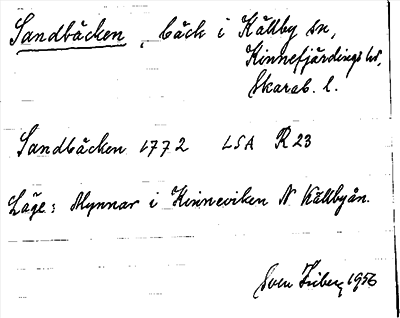 Sandbäcken, bäck i Källby sn,
Kinnefjärdings hd,
Skarab. l.
Sandbäcken 1772 LSA R 23
Läge: Mynnar i Kinneviken N Källbyån.
Sven Friberg 1956